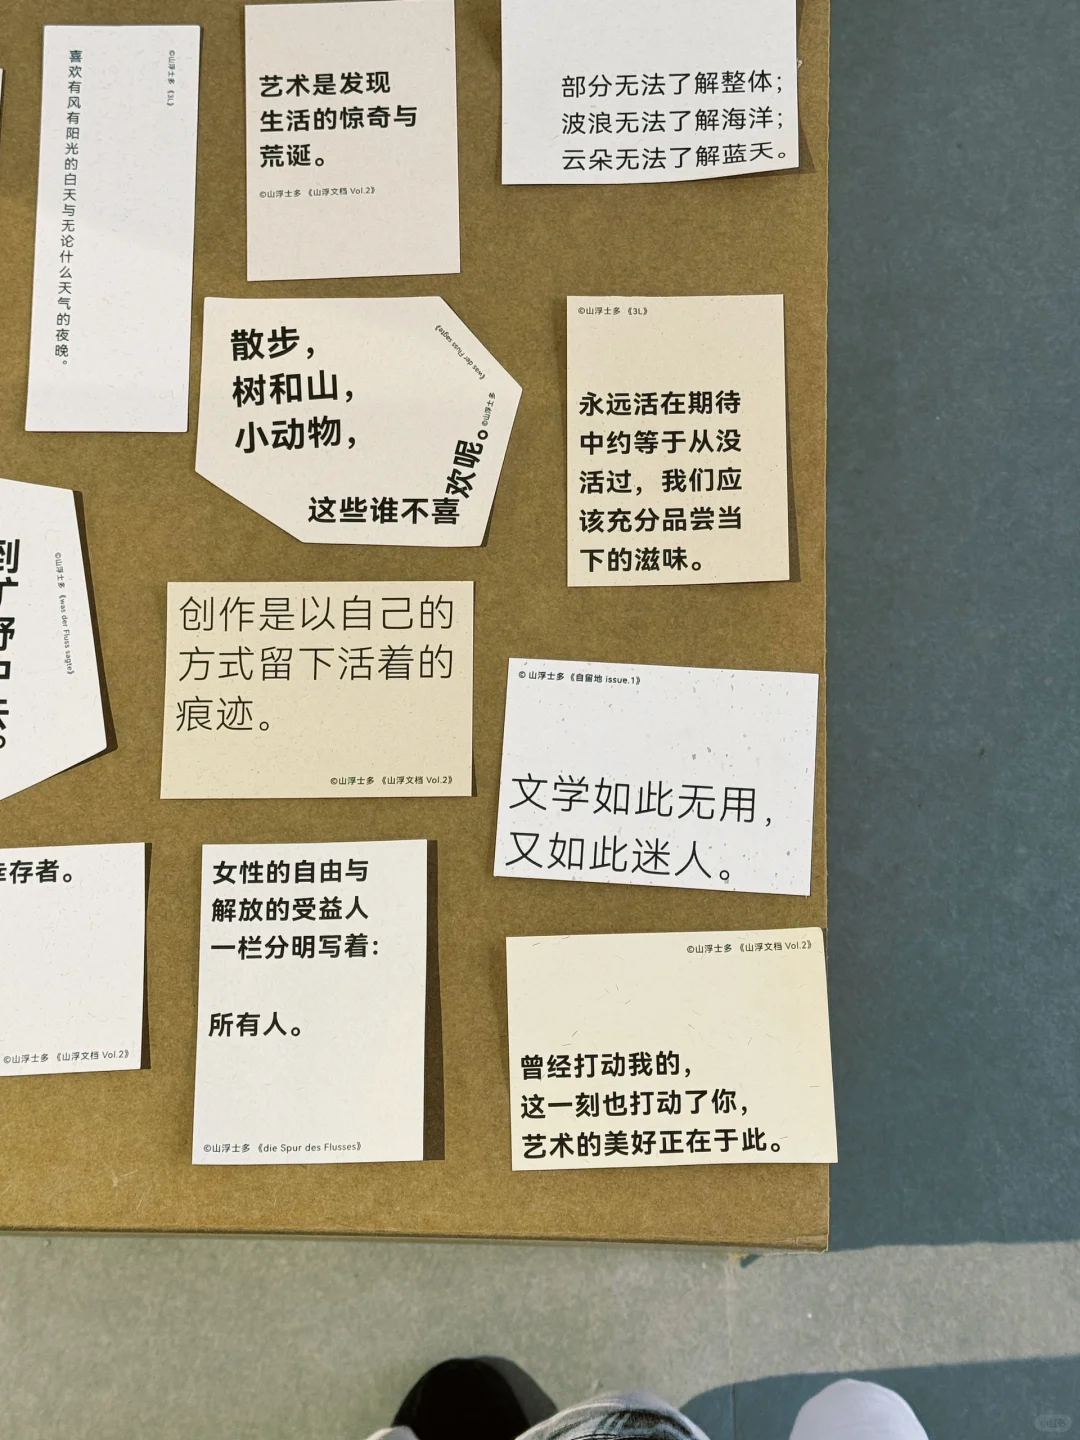 喜欢有风有阳光的白天与无论什么天气的夜晚。
©山浮士多 《3L》
艺术是发现
生活的惊奇与
荒诞。
©山浮士多 《山浮文档 Vol.2》
部分无法了解整体；
波浪无法了解海洋；
云朵无法了解蓝天。
散步，
树和山，
小动物，
这些谁不喜欢呢。
©山浮士多
《was der Fluss sagte》
©山浮士多 《3L》
永远活在期待
中约等于从没
活过，我们应
该充分品尝当
下的滋味。
到旷野中去。
©山浮士多 《was der Fluss sagte》
创作是以自己的
方式留下活着的
痕迹。
©山浮士多 《山浮文档 Vol.2》
© 山浮士多《自留地 issue.1》
文学如此无用，
又如此迷人。
幸存者。
©山浮士多 《山浮文档 Vol.2》
女性的自由与
解放的受益人
一栏分明写着：
所有人。
©山浮士多 《die Spur des Flusses》
©山浮士多 《山浮文档 Vol.2》
曾经打动我的，
这一刻也打动了你，
艺术的美好正在于此。